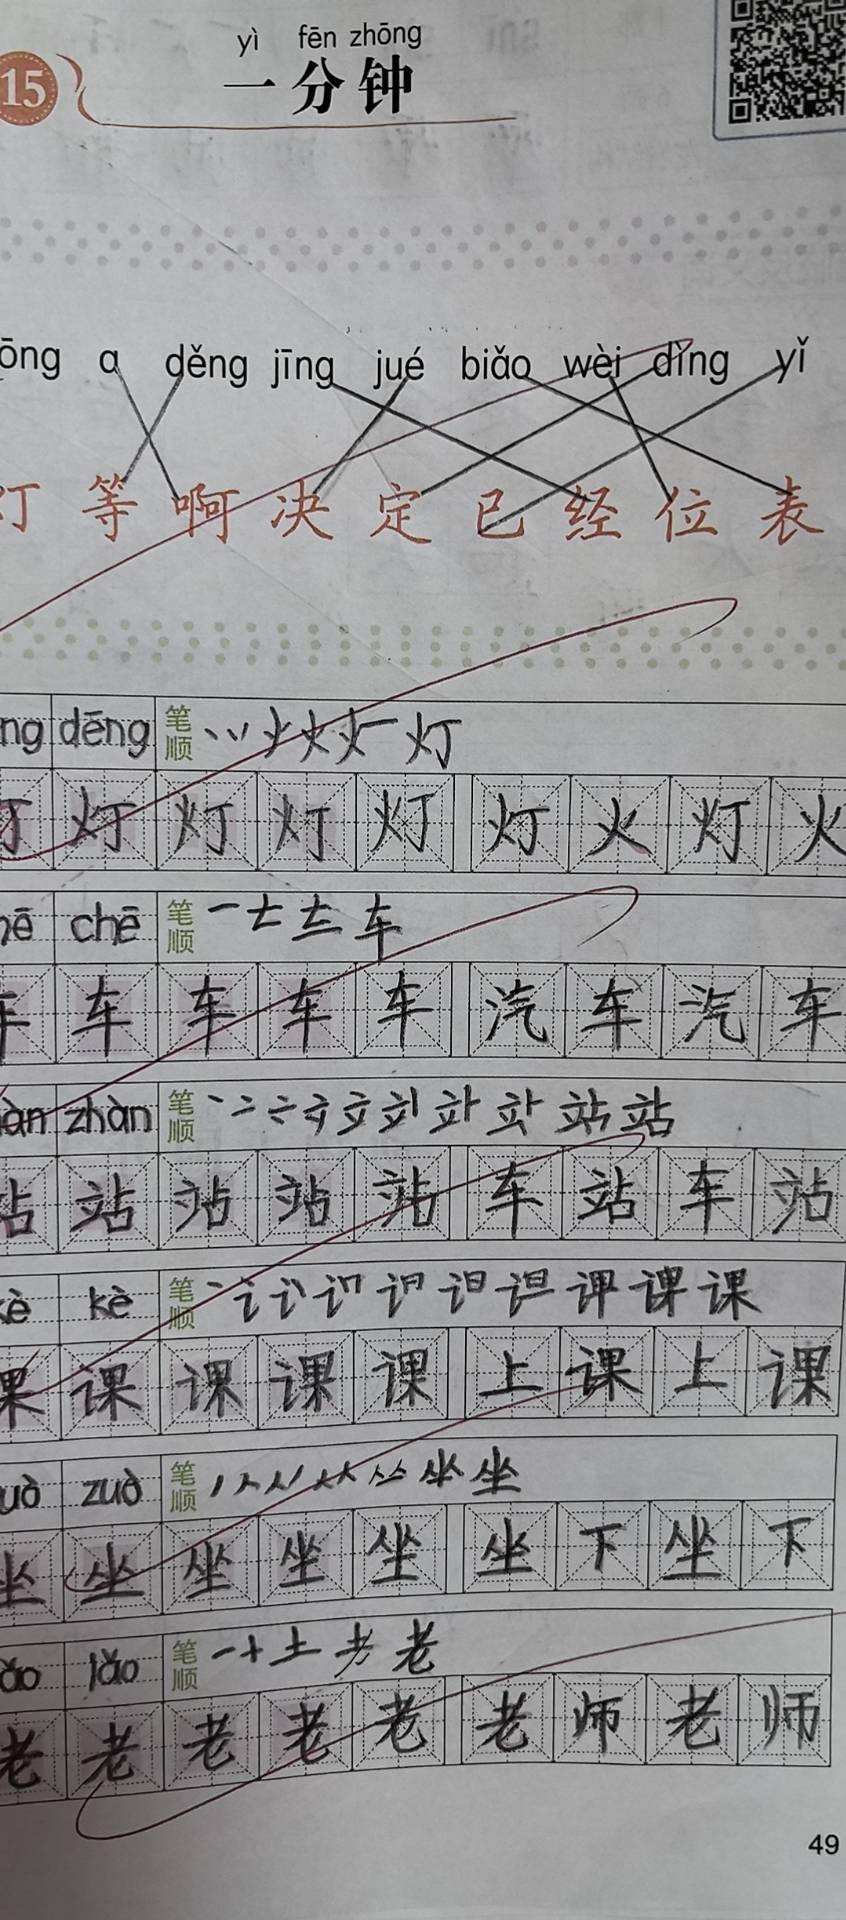 yì fēn zhōng
15 一分钟
ōng ɑ děng jīng jué biǎo wèi dìng yǐ
灯 等 啊 决 定 已 经 位 表
ng dēng 笔顺 灯
灯 灯 灯 灯 灯 灯 火 灯 火
hē chē 笔顺 一 车
车 车 车 车 车 汽 车 汽 车
àn zhàn 笔顺 立 站 站
站 站 站 站 站 车 站 车 站
kè kè 笔顺 课 课
课 课 课 课 课 上 课 上 课
uò zuò 笔顺 坐 坐
坐 坐 坐 坐 坐 坐 下 坐 下
ǎo lǎo 笔顺 一 十 土 耂 老
老 老 老 老 老 老 师 老 师
49